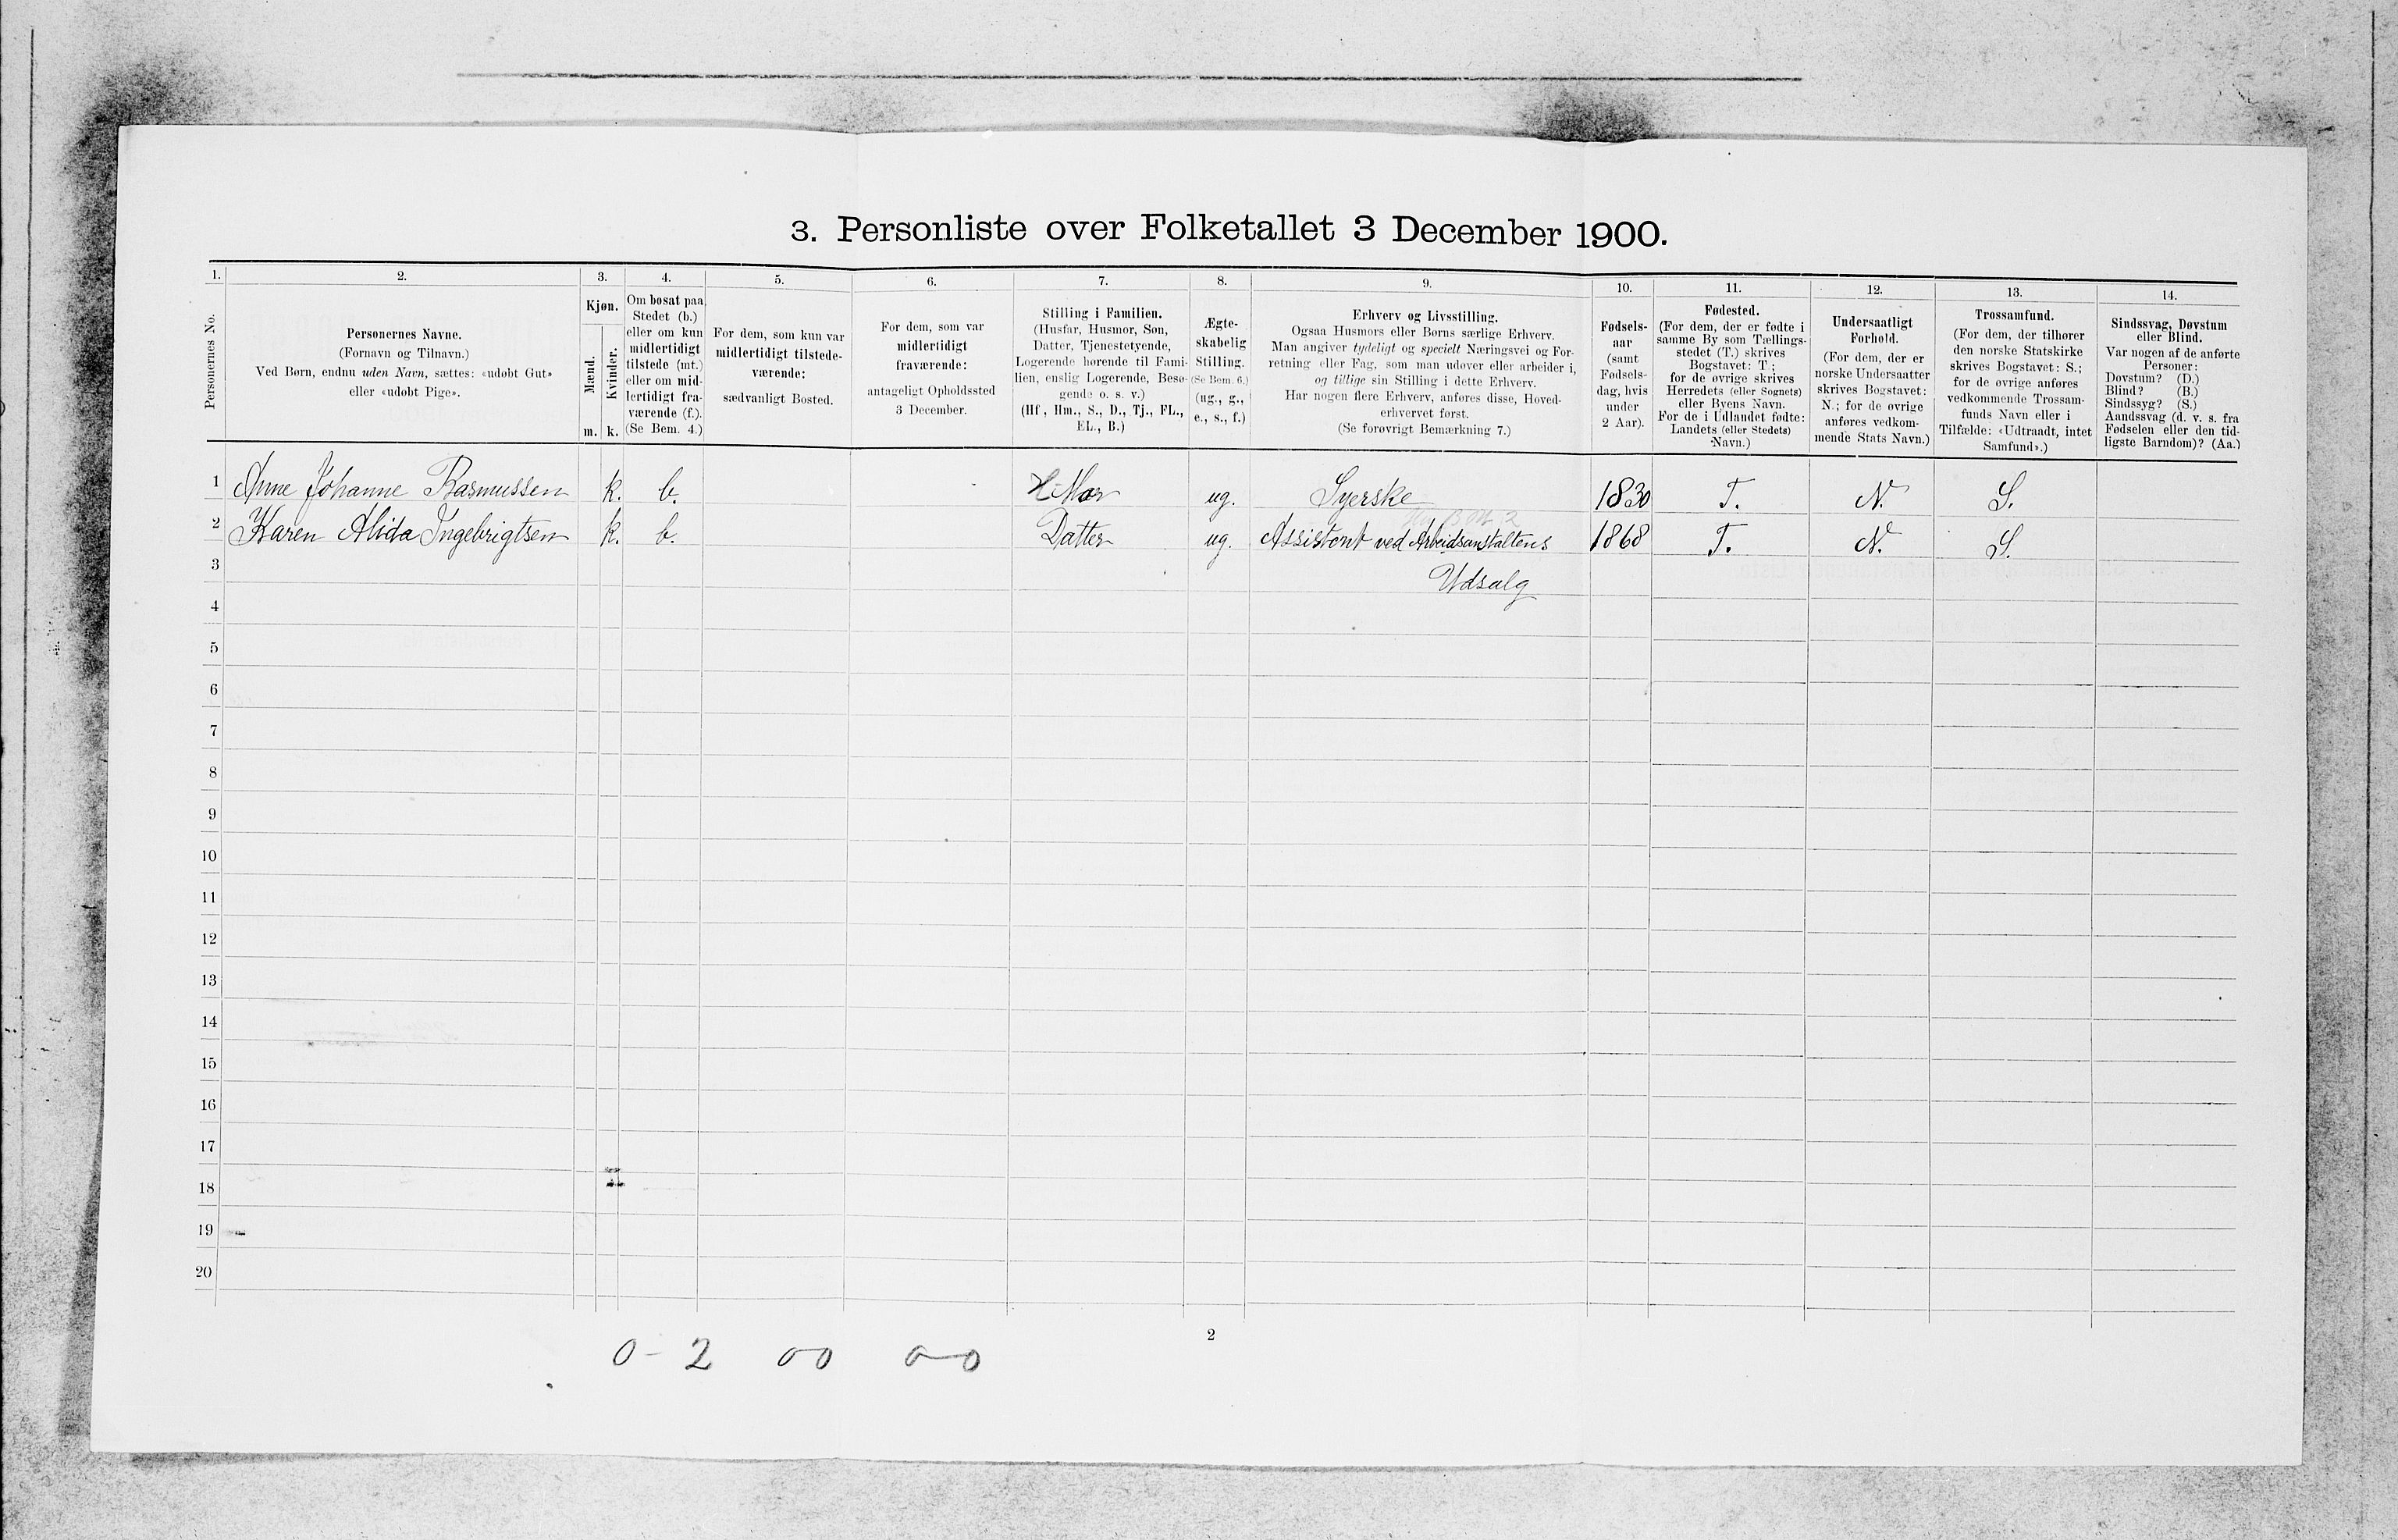 3. Personliste over Folketallet 3 December 1900.
1. 2. 3. 4. 5. 6. 7. 8. 9. 10. 11. 12. 13. 14.
Personernes No.
Personernes Navne.
(Fornavn og Tilnavn.)
Ved Børn, endnu uden Navn, sættes: «udøbt Gut»
eller «udøbt Pige».
Kjøn.
Mænd.
Kvinder.
m. k.
Om bosat paa
Stedet (b.)
eller om kun
midlertidigt
tilstede (mt.)
eller om mid-
lertidigt fra-
værende (f.).
(Se Bem. 4.)
For dem, som kun var
midlertidigt tilstede-
værende:
sædvanligt Bosted.
For dem, som var
midlertidigt
fraværende:
antageligt Opholdssted
3 December.
Stilling i Familien.
(Husfar, Husmor, Søn,
Datter, Tjenestetyende,
Logerende hørende til Fami-
lien, enslig Logerende, Besø-
gende o. s. v.)
(Hf, Hm., S., D., Tj., FL.,
EL., B.)
Ægte-
skabelig
Stilling.
(Se Bem. 6.)
(ug., g.,
e., s., f.)
Erhverv og Livsstilling.
Ogsaa Husmors eller Børns særlige Erhverv.
Man angiver tydeligt og specielt Næringsvei og For-
retning eller Fag, som man udøver eller arbeider i,
og tillige sin Stilling i dette Erhverv.
Har nogen flere Erhverv, anføres disse, Hoved-
erhvervet først.
(Se forøvrigt Bemærkning 7.)
Fødsels-
aar
(samt
Fødsels-
dag, hvis
under
2 Aar).
Fødested.
(For dem, der er fødte i
samme By som Tællings-
stedet (T.) skrives
Bogstavet: T;
for de øvrige skrives
Herredets (eller Sognets)
eller Byens Navn.
For de i Udlandet fødte:
Landets (eller Stedets)
Navn.)
Undersaatligt
Forhold.
(For dem, der er
norske Undersaatter
skrives Bogstavet:
N.; for de øvrige
anføres vedkom-
mende Stats Navn.)
Trossamfund.
(For dem, der tilhører
den norske Statskirke
skrives Bogstavet: S.;
for de øvrige anføres
vedkommende Trossam-
funds Navn eller i
Tilfælde: «Udtraadt, intet
Samfund».)
Sindssvag, Døvstum
eller Blind.
Var nogen af de anførte
Personer:
Døvstum? (D.)
Blind? (B.)
Sindssyg? (S.)
Aandssvag (d. v. s. fra
Fødselen eller den tid-
ligste Barndom)? (Aa.)
1 Anne Johanne Rasmussen k. b. Mor ug. Syerske 1830 T. N. S.
2 Karen Alida Ingebrigtsen k. b. Datter ug. Assistent ved Arbeidsanstaltens 1868 T. N. S.
3 Udsalg
4
5
6
7
8
9
10
11
12
13
14
15
16
17
18
19
20
2
0-2 00 0-0